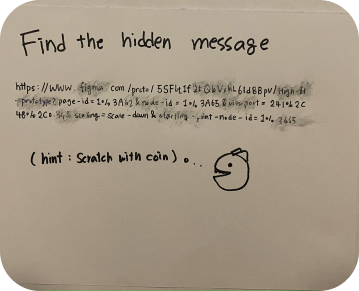 Find the hidden message
https://www.figma.com/proto/
prototype? page-id=1%3A62&node-id=1%3A65&viewport=241%2C
48%2C0. scaling=scale-down& starting-point-node-id=1%3A65
(hint: Scratch with coin)